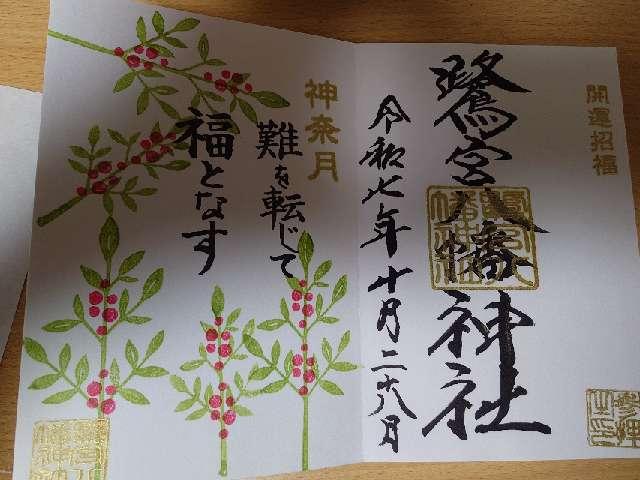 開運招福
鷺宮八幡神社
令和七年十月二十八日
神奈月
難を転じて
福となす